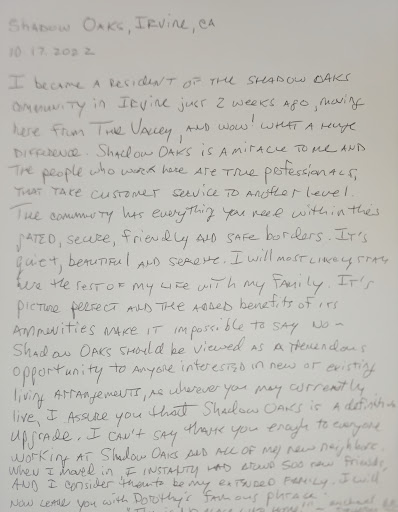 Shadow Oaks, Irvine, CA
10.17.2022
I became a resident of the Shadow Oaks
community in Irvine just 2 weeks ago, moving
here from The Valley, and wow! What a huge
difference. Shadow Oaks is a miracle to me and
the people who work here are true professionals,
that take customer service to another level.
The community has everything you need within this
gated, secure, friendly and safe borders. It's
quiet, beautiful and serene. I will most likely stay
here the rest of my life with my family. It's
picture perfect and the added benefits of its
ammenities make it impossible to say no -
Shadow Oaks should be viewed as a tremendous
opportunity to anyone interested in new or existing
living arrangements, as wherever you may currently
live, I assure you that Shadow Oaks is a definitive
upgrade. I can't say thank you enough to everyone
working at Shadow Oaks and all of my new neighbors.
When I moved in, I instantly had 500 new friends,
and I consider them to be my extended family. I will
now leave you with Dorothy's famous phrase: